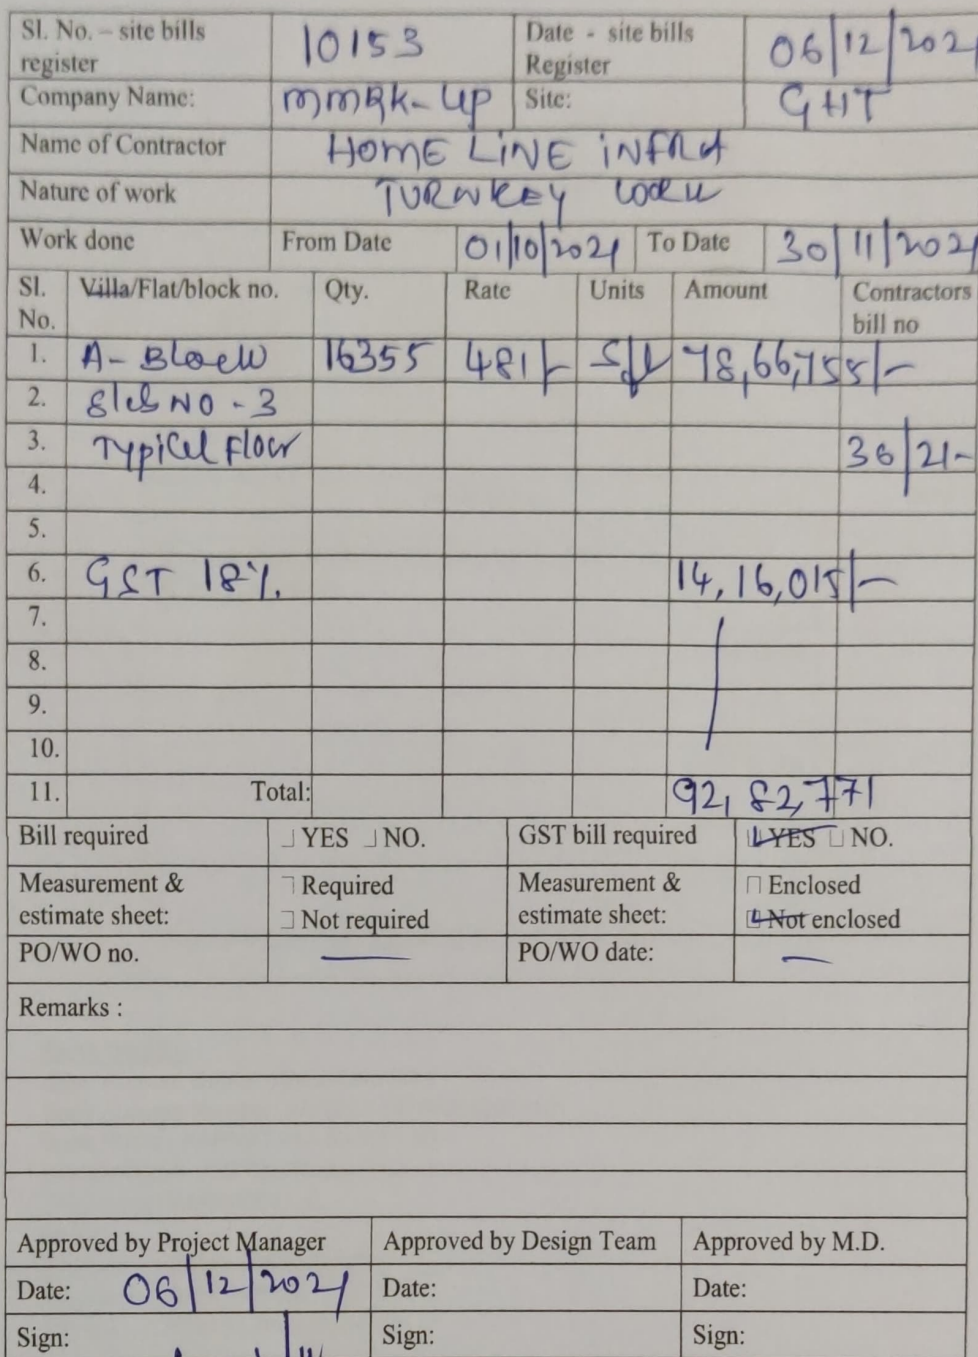 Sl. No. – site bills register 10153 Date - site bills Register 06/12/202
Company Name: MMRK-UP Site: GHT
Name of Contractor HOME LINE INFRA
Nature of work TURNKEY work
Work done From Date 01/10/2021 To Date 30/11/202
Sl. No. Villa/Flat/block no. Qty. Rate Units Amount Contractors bill no
1. A- Block 16355 481/- Sft 78,66,755/-
2. Slab NO - 3
3. Typical Floor 36/21-
4.
5.
6. GST 18%. 14,16,015/-
7.
8.
9.
10.
11. Total: 92,82,771
Bill required YES NO. GST bill required YES NO.
Measurement & estimate sheet: Required Not required Measurement & estimate sheet: Enclosed Not enclosed
PO/WO no. — PO/WO date: —
Remarks :
Approved by Project Manager Approved by Design Team Approved by M.D.
Date: 06/12/2021 Date: Date:
Sign: Sign: Sign: